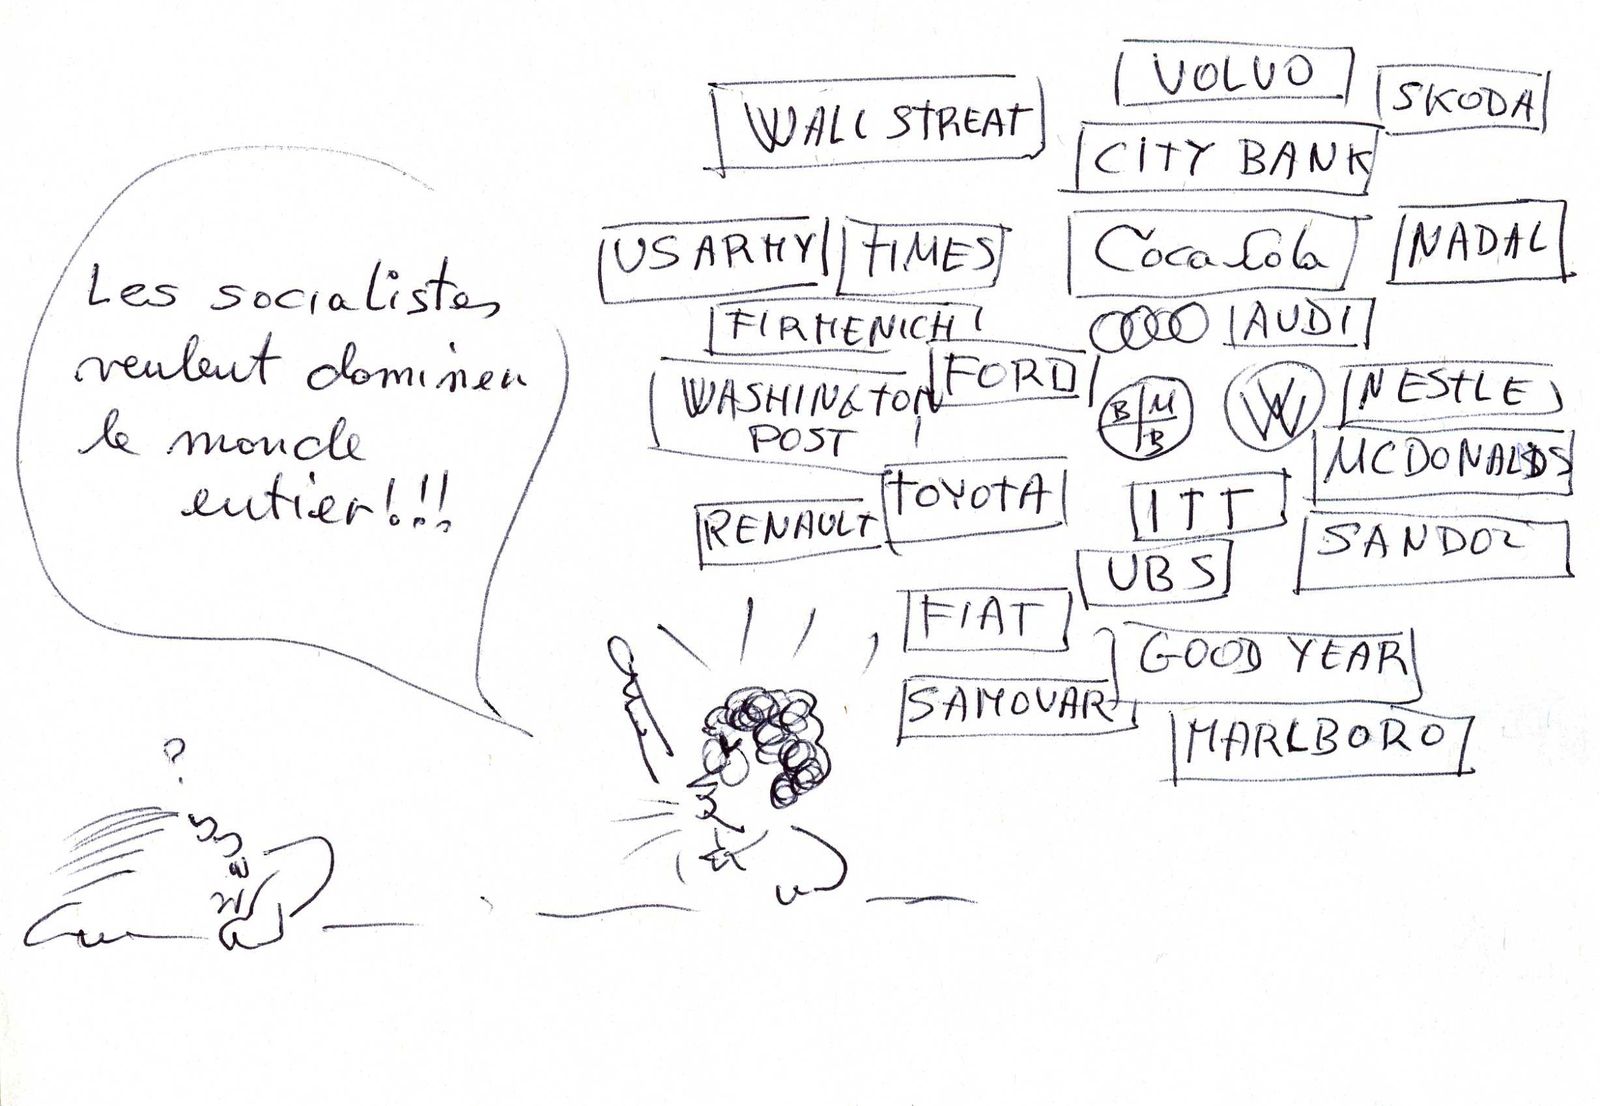 Les socialistes
veulent dominer
le monde
entier!!!
?
WALL STREAT
VOLVO
SKODA
CITY BANK
US ARMY
TIMES
Coca Cola
NADAL
FIRMENICH
AUDI
WASHINGTON
POST
FORD
B M
B
VW
NESTLE
MCDONALDS
RENAULT
TOYOTA
ITT
SANDOZ
UBS
FIAT
GOOD YEAR
SAMOVAR
MARLBORO